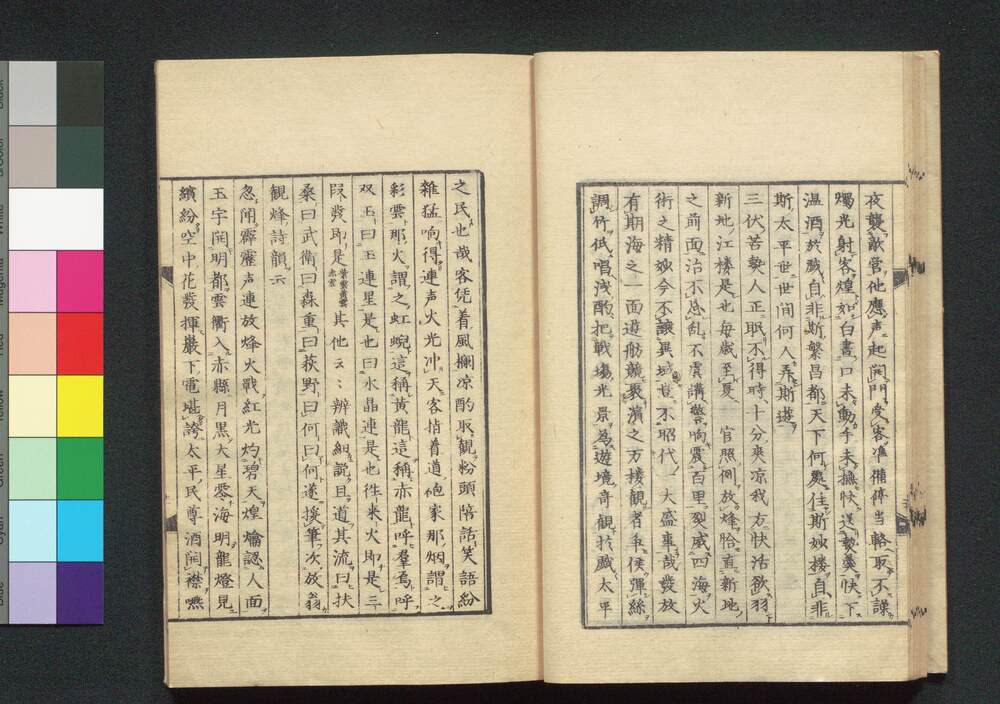 夜襲敵営他應声起開門受客準備停当輅取不謀
燭光射客煌如白昼口未動手未撫快送勢羹快下
温酒於戯自非斯繁昌都天下何處住斯妙楼自非
斯太平世世間何人弄斯遊
三伏苦熱人正眠不得時十分爽凉我方快活飲羽
新地江楼是也毎歳至夏官照例放烽恰直新地
之前面治不忘乱不虞講警响震百里烈威四海火
術之精妙今不譲異域豈不昭代一大盛事哉發放
有期海之一面遊舫競聚濱之万楼観者争候弾絲
調竹低唱浅酌把戦場光景為遊境奇観於戯太平
之民也哉客凭着風欄凉酌取観粉頭陪話笑語紛
雑猛响得連声火光冲天客指着道他家那烟謂之
彩雲那火謂之虹蜺這稱黄龍這稱赤龍呼羣焉呼
双玉曰玉連星是也曰水晶連是也徃来火即是三
段発即是紫雲黄雲赤雲其他云云辨識細説且道其流曰扶
桑曰武衛曰森重曰荻野曰何曰何遂援筆次放翁
観烽詩韻云
忽聞霹靂声連放烽火戦紅光灼碧天煌煌認人面
玉宇開明都雲衢入赤縣月黒大星零海明龍燈見
繽紛空中花發揮巌下電堪誇太平民尊酒開襟嚥